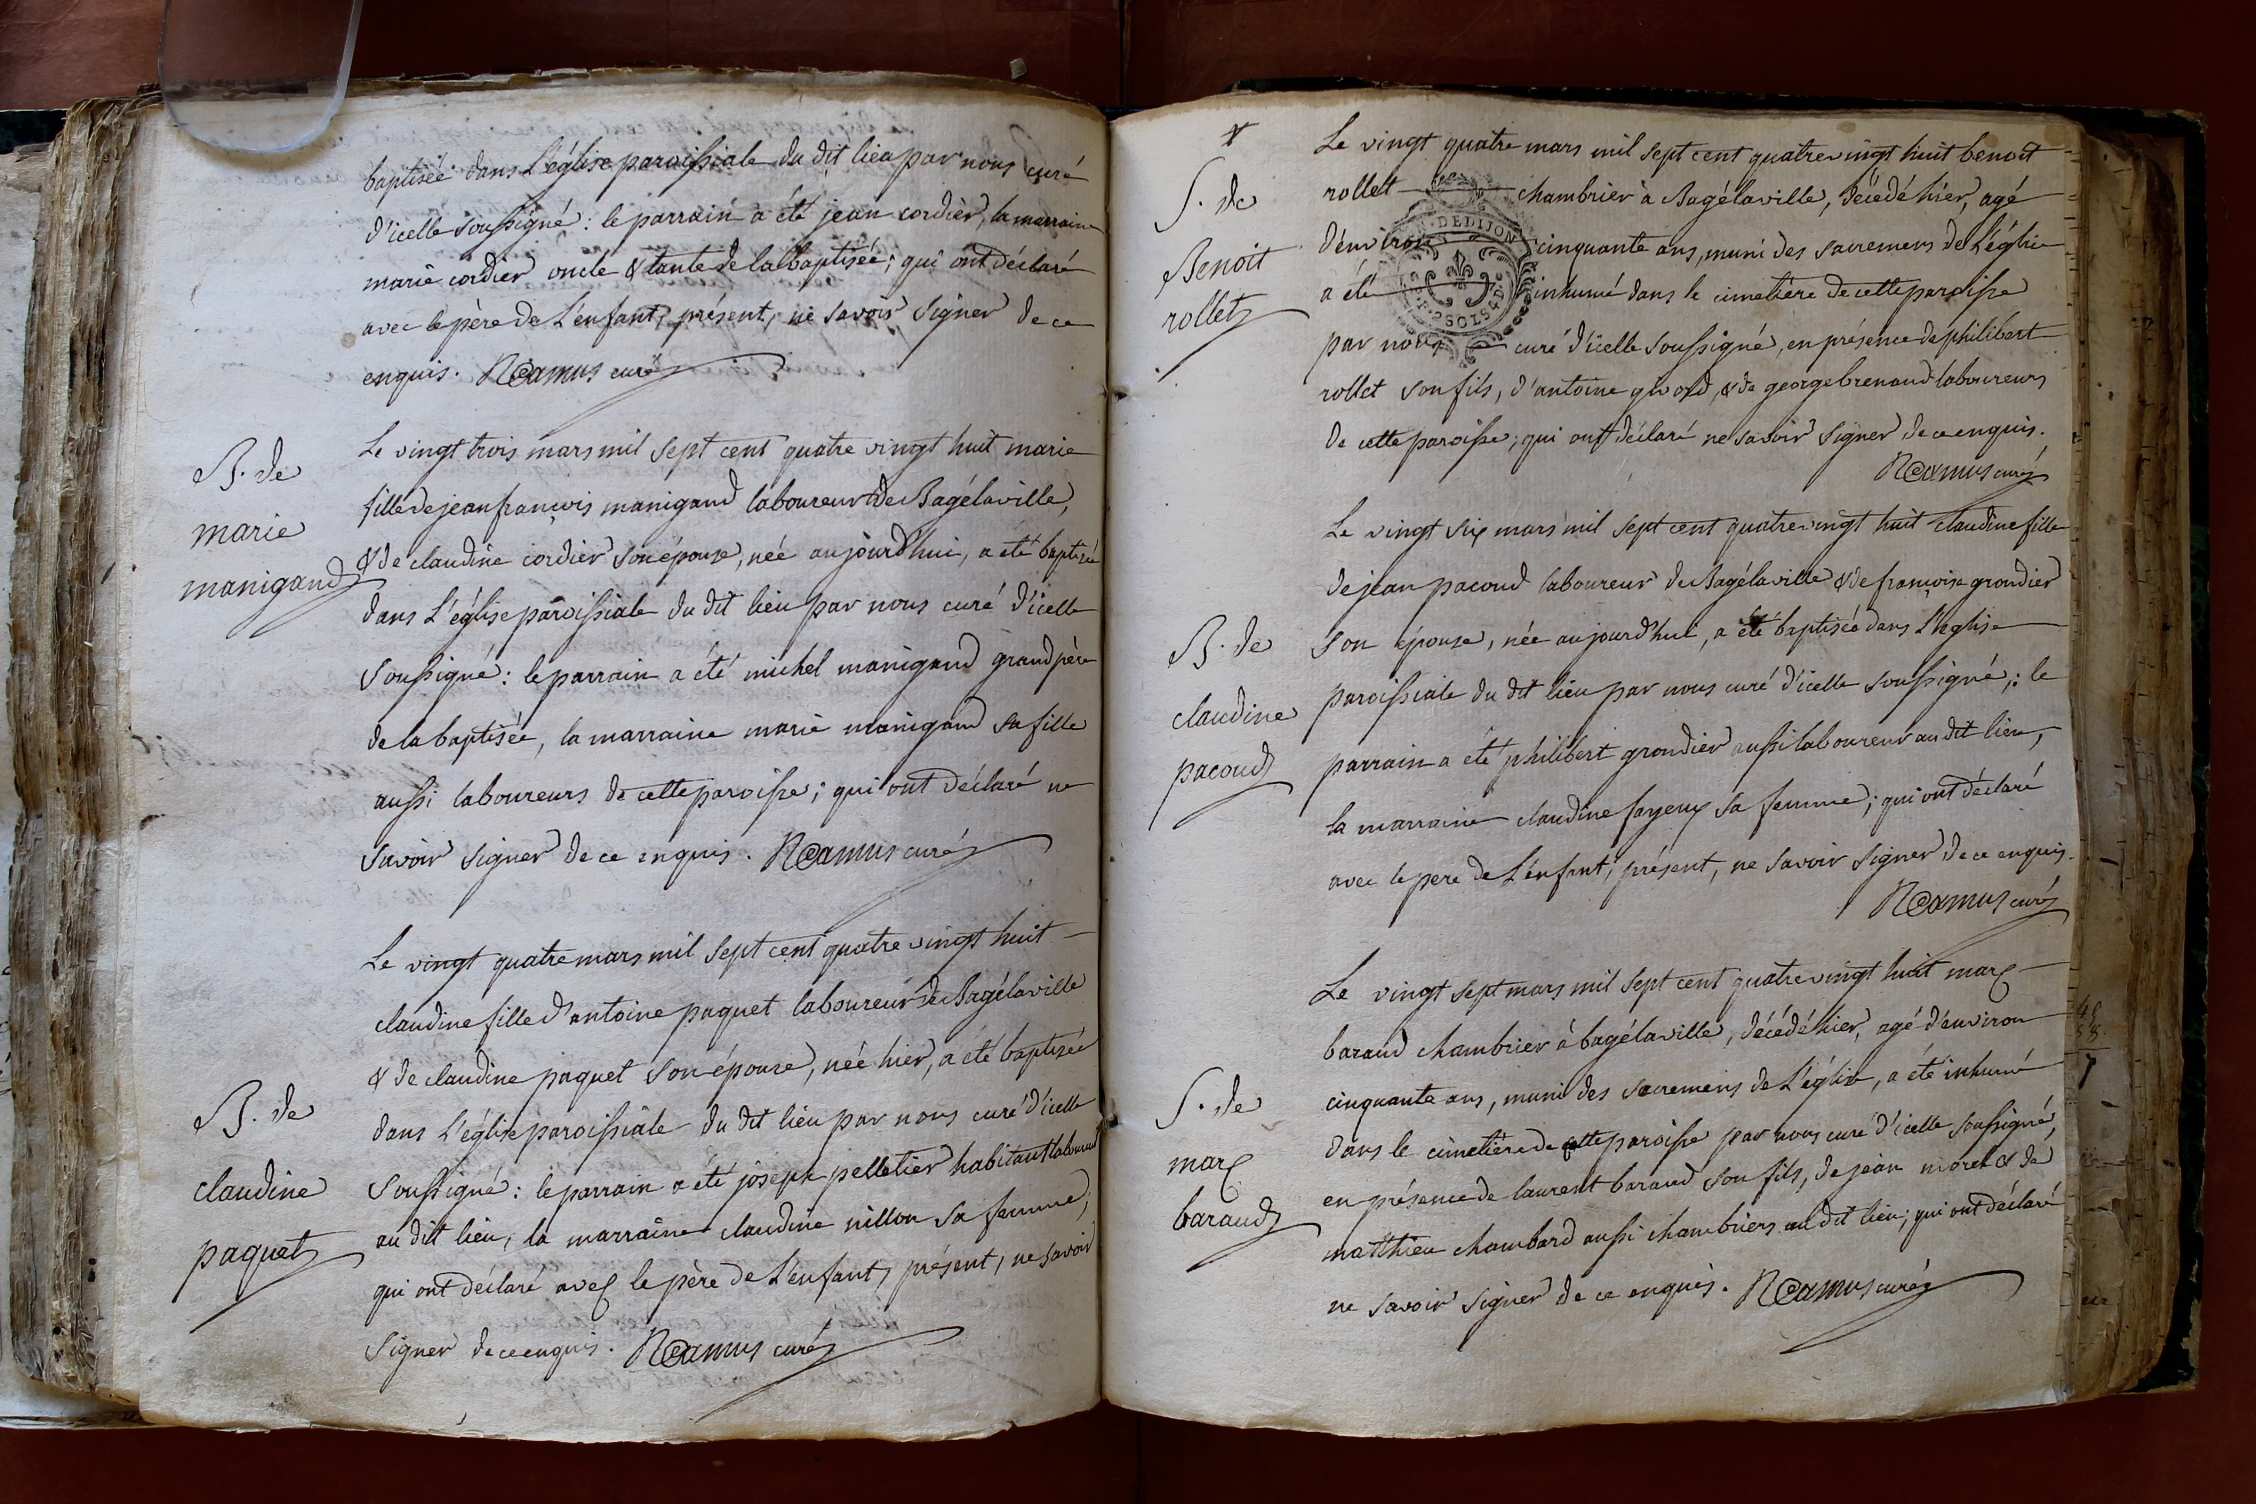 baptiséé dans L'église paroissiale du dit lieu par nous curé
d'icelle soussigné : le parrain a été jean cordier, la marraine
marie cordier oncle & tante de la baptiséé ; qui ont déclaré
avec le père de L'enfant, présent, ne savoir signer de ce
enquis. Camus curé
B. de
marie
manigaud
Le vingt trois mars mil sept cent quatre vingt huit marie
fille de jean françois manigaud laboureur de Bagélaville,
& de claudine cordier son épouse, néé aujourd'hui, a été baptiséé
dans L'église paroissiale du dit lieu par nous curé d'icelle
soussigné : le parrain a été michel manigaud grand père
de la baptiséé, la marraine marie manigaud sa fille
aussi laboureurs de cette paroisse ; qui ont déclaré ne
savoir signer de ce enquis. Camus curé
B. de
claudine
paquet
Le vingt quatre mars mil sept cent quatre vingt huit
claudine fille d'antoine paquet laboureur de Bagélaville
& de claudine paquet son épouse, néé hier, a été baptiséé
dans L'église paroissiale du dit lieu par nous curé d'icelle
soussigné : le parrain a été joseph pelletier habitant laboureur
au dit lieu, la marraine claudine nillon sa femme ;
qui ont déclaré avec le père de L'enfant, présent, ne savoir
signer de ce enquis. Camus curé
S. de
Benoit
rollet
Le vingt quatre mars mil sept cent quatre vingt huit benoit
rollet chambrier à Bagélaville, décédé hier, agé
d'environ cinquante ans, muni des sacremens de L'église
a été inhumé dans le cimetière de cette paroisse
par nous curé d'icelle soussigné, en présence de philibert
rollet son fils, d'antoine givord, & de george brenaud laboureurs
de cette paroisse ; qui ont déclaré ne savoir signer de ce enquis.
Camus curé
DE DIJON
SOLS
B. de
claudine
pacoud
Le vingt six mars mil sept cent quatre vingt huit claudine fille
de jean pacoud laboureur de Bagélaville & de françoise grondier
son épouse, née aujourd'hui, a été baptisée dans L'église
paroissiale du dit lieu par nous curé d'icelle soussigné, : le
parrain a été philibert grondier aussi laboureur au dit lieu,
la marraine claudine fayeux sa femme ; qui ont déclaré
avec le pere de L'enfant, présent, ne savoir signer de ce enquis.
Camus curé
S. de
marc
baraud
Le vingt sept mars mil sept cent quatre vingt huit marc
baraud chambrier à bagélaville, décédé hier, agé d'environ
cinquante ans, muni des sacremens de L'église, a été inhumé
dans le cimetière de cette paroisse par nous curé d'icelle soussigné,
en présence de laurent baraud son fils, de jean morel & de
matthieu chambard aussi chambriers au dit lieu ; qui ont déclaré
ne savoir signer de ce enquis. Camus curé